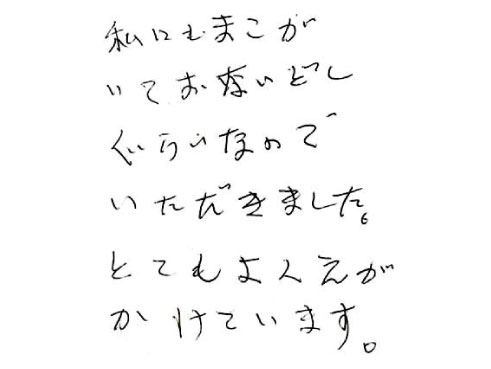 私にもまごが
いておないどし
ぐらいなので
いただきました。
とてもよくえが
かけています。